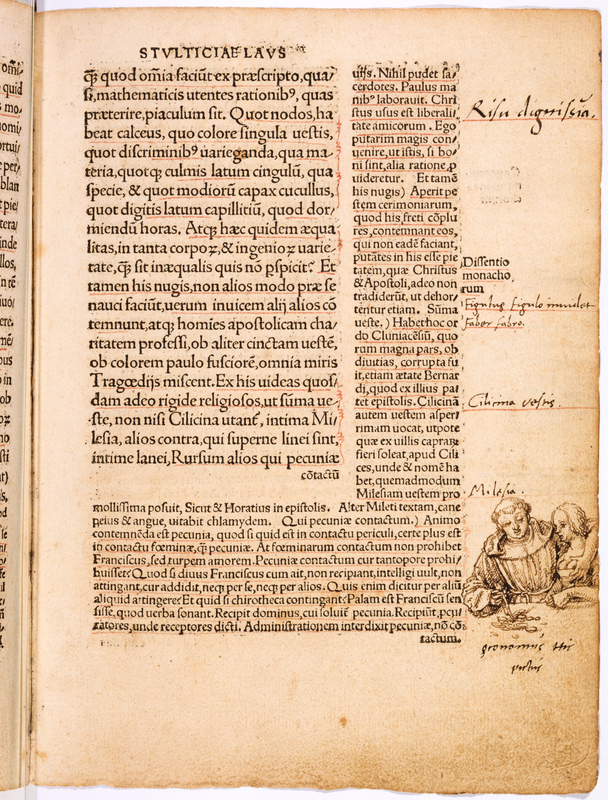 STVLTICIAE LAVS
q̃ꝫ quod oм̃ia faciũt ex præscripto, qua/
si, mathematicis utentes rationibꝰ, quas
præterire, piaculum sit. Quot nodos, ha
beat calceus, quo colore singula uestis,
quot discriminibꝰ uarieganda, qua ma/
teria, quotqꝫ culmis latum cingulũ, qua
specie, & quot modiorũ capax cucullus,
quot digitis latum capillitiũ, quot dor/
miendũ horas. Atqꝫ hæc quidem æqua
litas, in tanta corpoꝝ, & ingenioꝝ uarie/
tate, q̃ꝫ sit inæqualis quis nõ pspicit? Et
tamen his nugis, non alios modo præ se
nauci faciũt, uerum inuicem alij alios cõ
temnunt, atqꝫ homĩes apostolicam cha/
ritatem professi, ob aliter cinctam uestẽ,
ob colorem paulo fusciorẽ, omnia miris
Tragœdijs miscent. Ex his uideas quos/
dam adeo rigide religiosos, ut sũma ue/
ste, non nisi Cilicina utant̃, intima Mi/
lesia, alios contra, qui superne linei sint,
intime lanei, Rursum alios qui pecuniæ
cõtactũ
uisس. Nihil pudet sa/
cerdotes. Paulus ma
nibꝰ laborauit. Chri
stus usus est liberali/
tate amicorum. Ego
putarim magis con/
uenire, ut istis, si bo/
ni sint, alia ratione, p
uideretur. Et tamẽ
his nugis) Aperit pe
stem cerimoniarum,
quod his, freti cõplu
res, contemnant eos,
qui non eadẽ faciant,
putãtes in his esse pie
tatem, quæ Christus
& Apostoli, adeo non
tradiderũt, ut dehor/
tentur etiam. Sũma
ueste.) Habet hoc or
do Cluniacẽsiũ, quo
rum magna pars, ob
diuitias, corrupta fu
it, etiam ætate Bernar
di, quod ex illius pa/
tet epistolis. Cilicinã
autem uestem asperi
rimam uocat, utpote
quæ ex uillis caprarꝫ
fieri soleat, apud Cili
ces, unde & nomẽ ha
bet, quemadmodum
Milesiam uestem pro
mollissima posuit, Sicut & Horatius in epistolis. Alter Mileti textam, cane
peius & angue, uitabit chlamydem. Qui pecuniæ contactum.) Animo
contemnẽda est pecunia, quod si quid est in contactu periculi, certe plus est
in contactu fœminæ, q̃ꝫ pecuniæ. At fœminarum contactum non prohibet
Franciscus, sed turpem amorem. Pecuniæ contactum cur tantopere prohi/
buisset? Quod si diuus Franciscus cum ait, non recipiant, intelligi uult, non
attingant, cur addidit, necꝫ per se, necꝫ per alios. Quis enim dicitur per aliũ
aliquid attingere? Et quid si chirotheca contingant? Palam est Franciscũ sen
sisse, quod uerba sonant. Recipit dominus, cui soluit̃ pecunia. Recipiũt, pcu/
ratores, unde receptores dicti. Administrationem interdixit pecuniæ, nõ cõ/
tactum.
Risu digniss̃ia.
Dissentio
monacho,
rum
Figulus figulo inuidet
faber fabro.
Cilicina vestis.
Milesia.